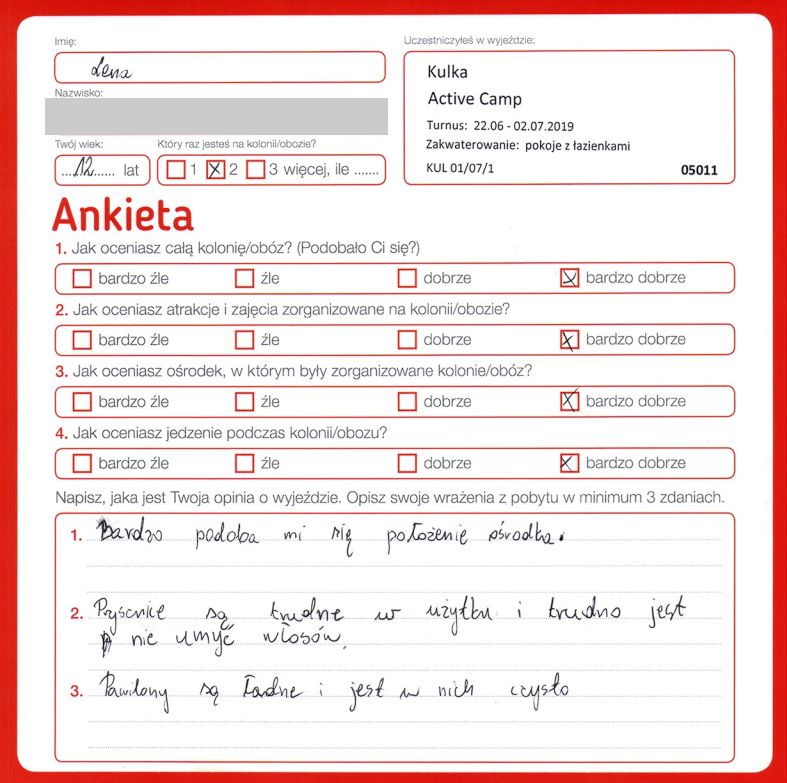 Imię:
Lena
Nazwisko:
Twój wiek:
12 lat
Który raz jesteś na kolonii/obozie?
1 2 3 więcej, ile .......
Uczestniczyłeś w wyjeździe:
Kulka
Active Camp
Turnus: 22.06 - 02.07.2019
Zakwaterowanie: pokoje z łazienkami
KUL 01/07/1 05011
Ankieta
1. Jak oceniasz całą kolonię/obóz? (Podobało Ci się?)
bardzo źle źle dobrze bardzo dobrze
2. Jak oceniasz atrakcje i zajęcia zorganizowane na kolonii/obozie?
bardzo źle źle dobrze bardzo dobrze
3. Jak oceniasz ośrodek, w którym były zorganizowane kolonie/obóz?
bardzo źle źle dobrze bardzo dobrze
4. Jak oceniasz jedzenie podczas kolonii/obozu?
bardzo źle źle dobrze bardzo dobrze
Napisz, jaka jest Twoja opinia o wyjeździe. Opisz swoje wrażenia z pobytu w minimum 3 zdaniach.
1. Bardzo podoba mi się położenie ośrodka.
2. Prysznice są trudne w użytku i trudno jest
nie umyć włosów.
3. Pawilony są ładne i jest w nich czysto